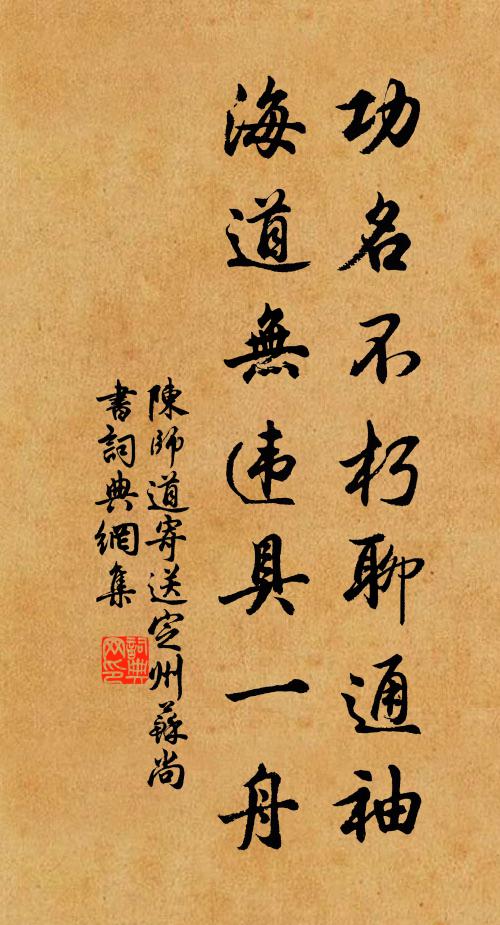 功名不朽聊通袖
海道無违具一舟
陳師道寄送定州蘇尚
書詞典網集
詞典网印